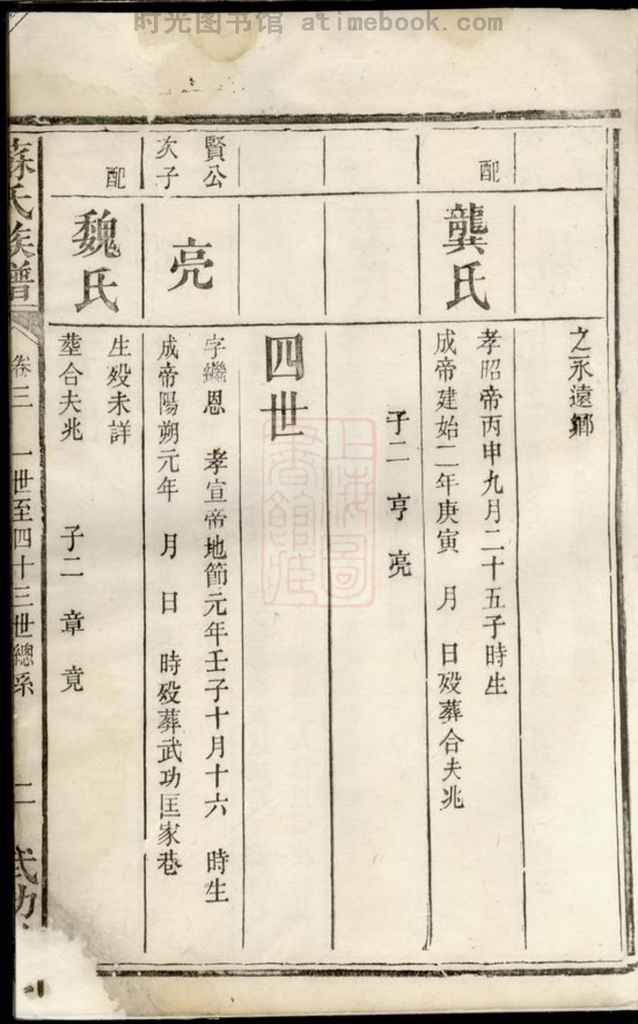 时光图书馆 atimebook.com
之永遠鄉
配
龔氏
孝昭帝丙申九月二十五子時生
成帝建始二年庚寅 月 日歿葬合夫兆
子二 亨 亮
四世
賢公
次子
亮
字繼恩 孝宣帝地節元年壬子十月十六 時生
成帝陽朔元年 月 日 時歿葬武功匡家巷
配
魏氏
生歿未詳
塟合夫兆 子二 章 竟
蘇氏族譜
卷三 一世至四十三世總系 二 武功
上海圖書館藏